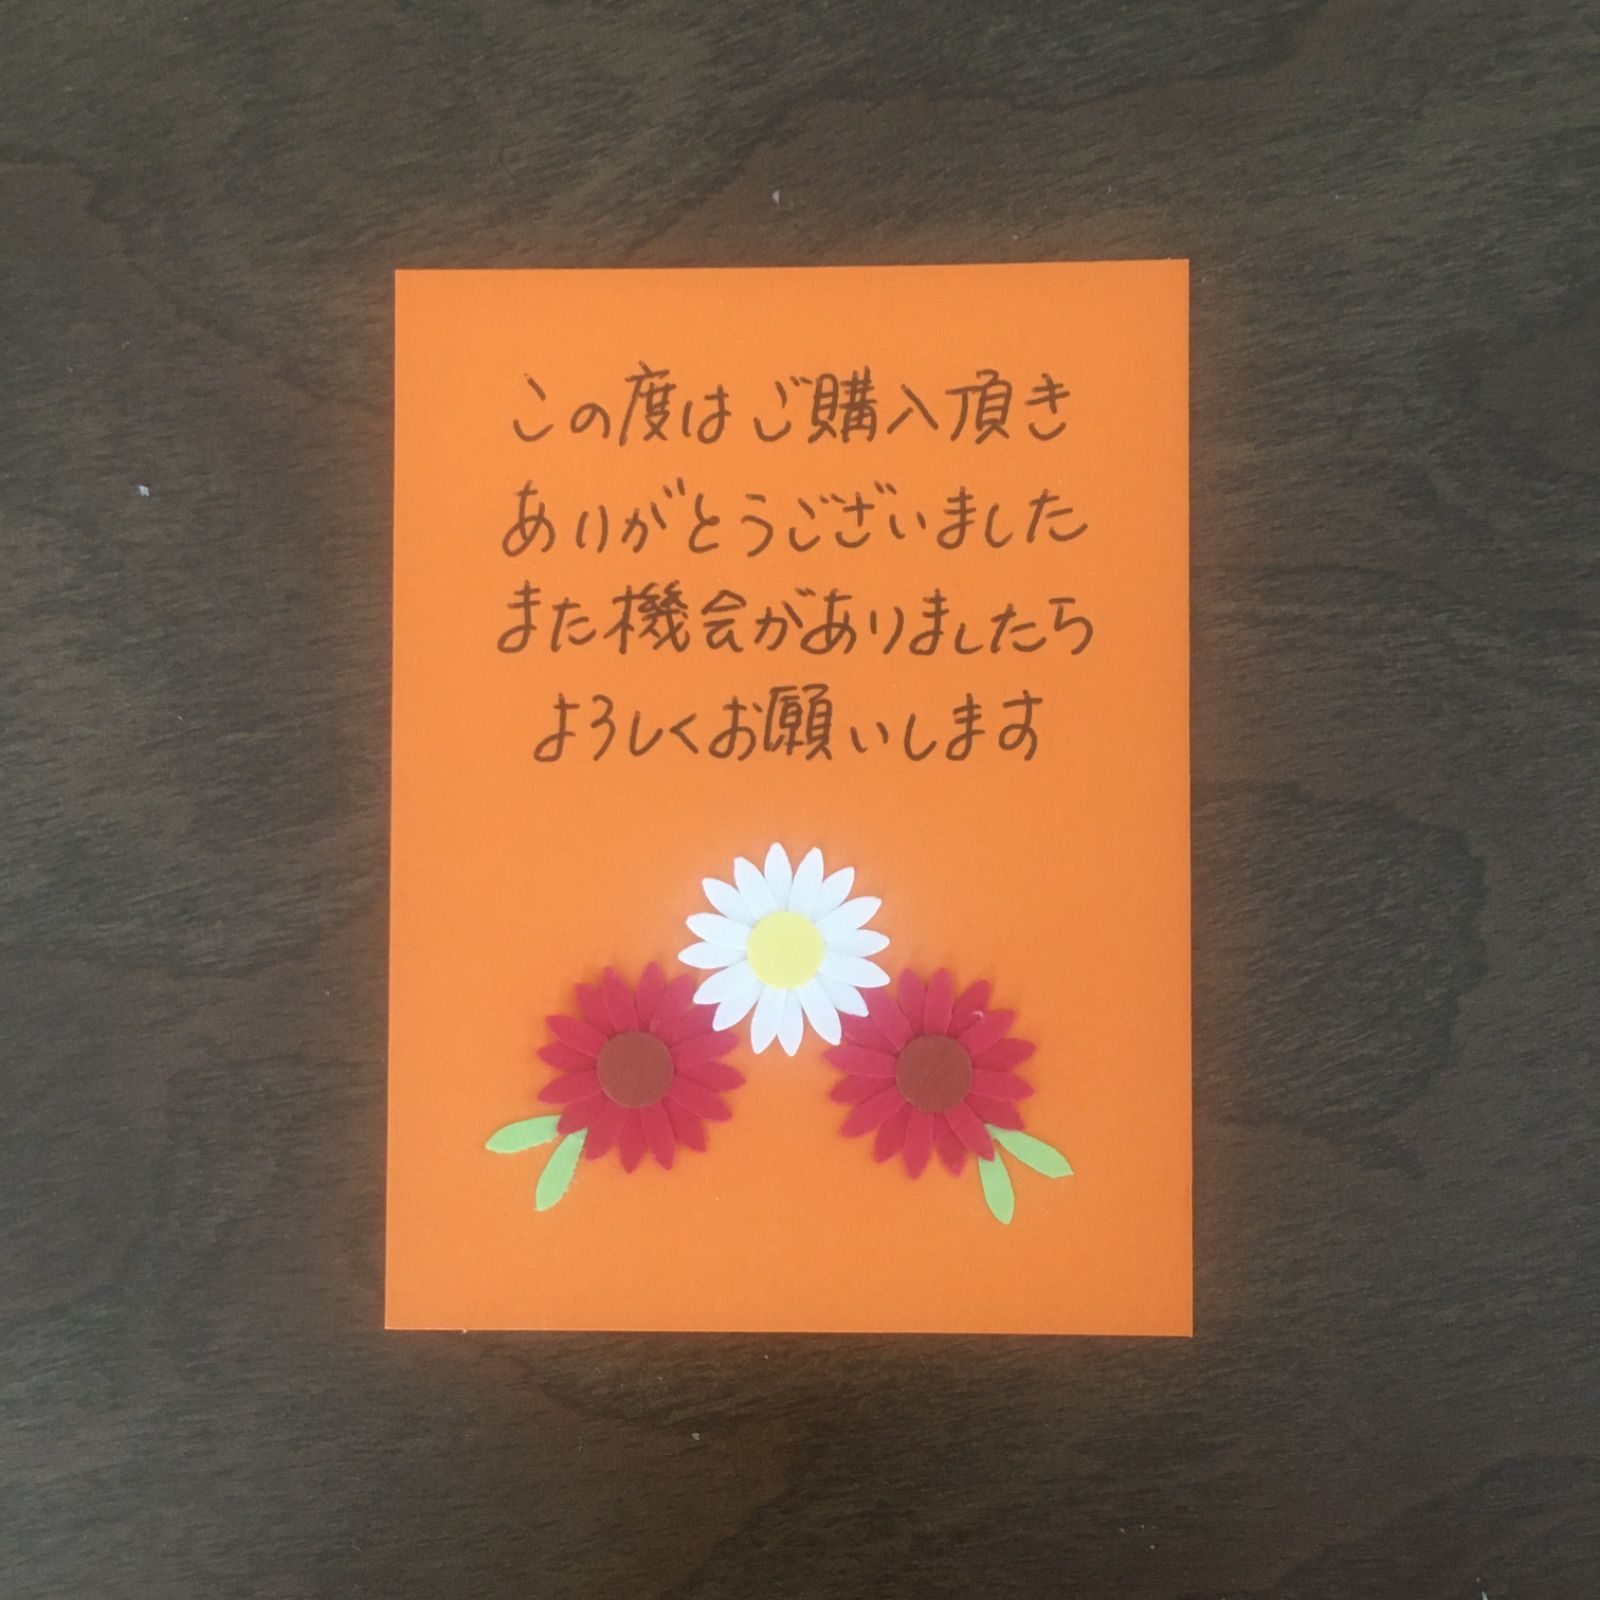 この度はご購入頂き
ありがとうございました
また機会がありましたら
よろしくお願いします